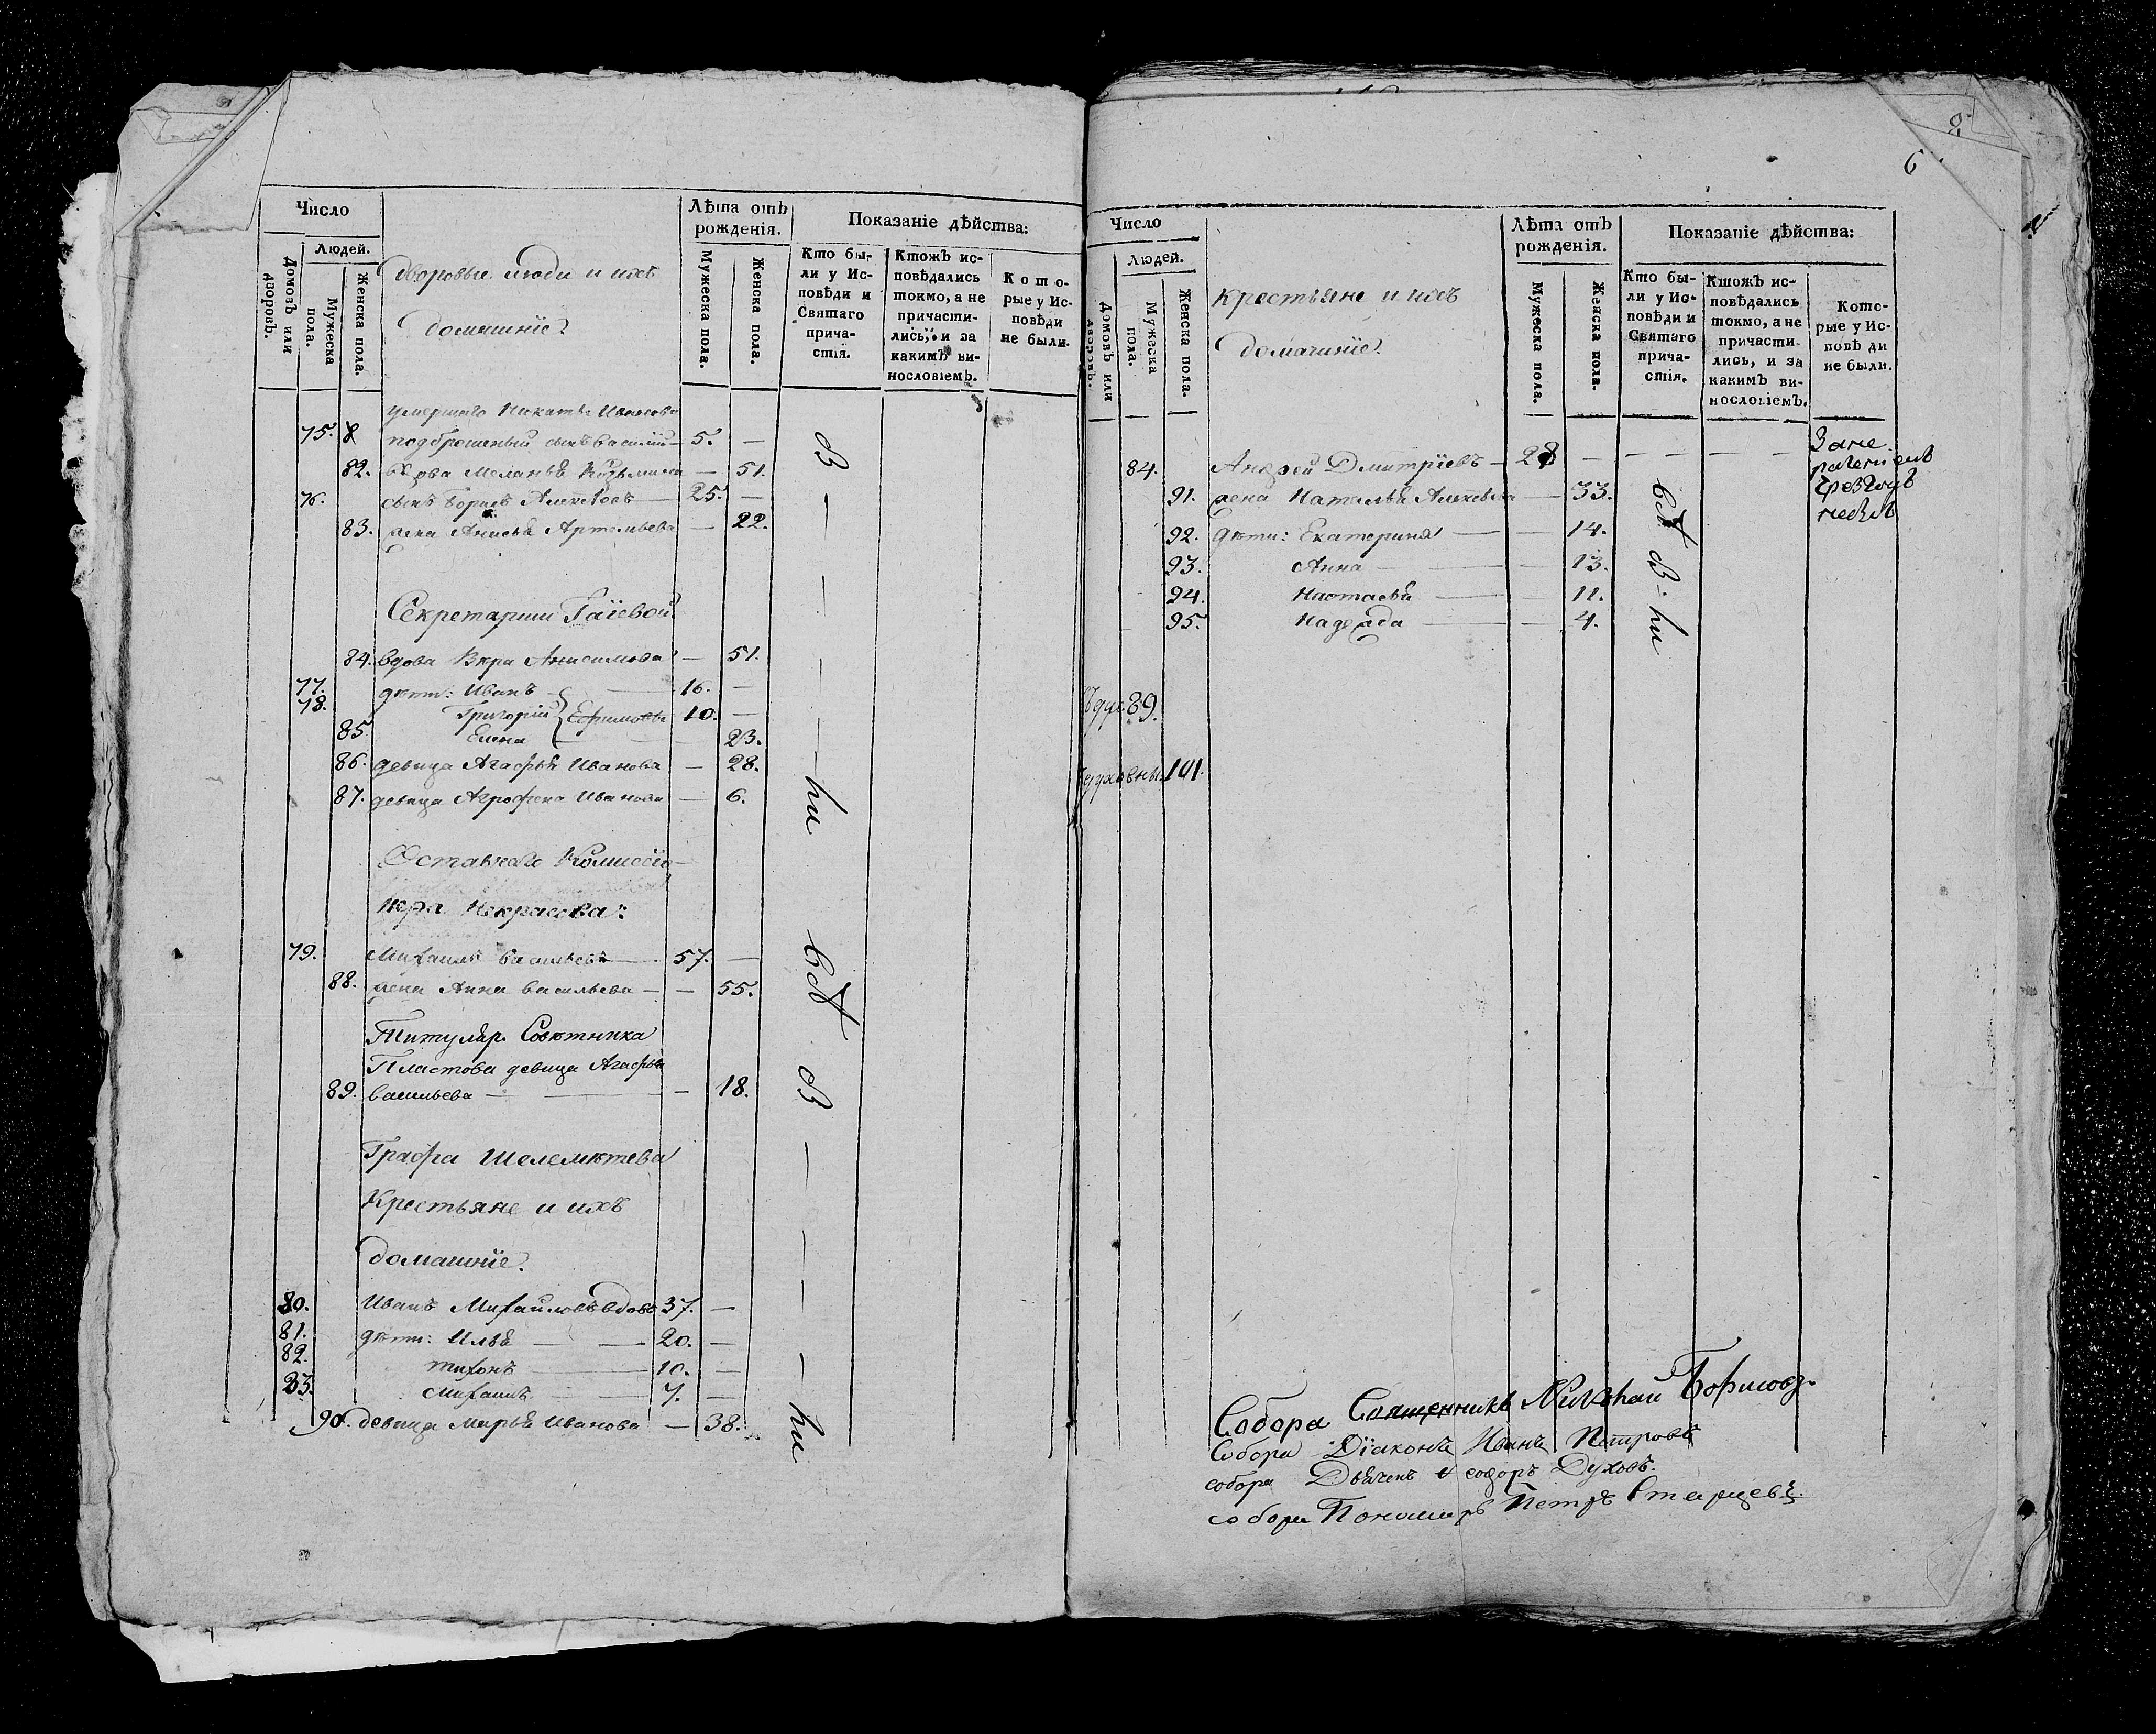 Число
Людей.
Домовъ или дворовъ.
Мужеска пола.
Женска пола.
дворовые люди и ихъ
домашніе
Лѣта отъ рожденія.
Мужеска пола.
Женска пола.
Показаніе дѣйства:
Кто бы-
ли у Ис-
повѣди и
Святаго
прича-
стія.
Ктожъ ис-
повѣдались
токмо, а не
причасти-
лись, и за
какимъ ви-
нословіемъ.
Кото-
рые у Ис-
повѣди
не были.
умершаго Никиты Иванова
75. подброшеный сынъ Василій — 5. —
82. вдова Меланья Козьмина — 51.
76. сынъ Борисъ Алексѣевъ — 25. —
83. жена Анисья Артемьева — 22.
Секретарши Гаіевой
84. вдова Вѣра Анисимова — 51.
77. дѣти: Иванъ — 16. —
78. Григорій Ефимовы 10. —
85. Елена — 23.
86. девица Агафья Иванова — 28.
87. девица Агрофена Иванова — 6.
Оставнаго Комисіо-
нера Некрасова:
79. Михаилъ Васильевъ — 57. —
88. жена Анна Васильева — — 55.
Титуляр. Совѣтника
Пластова девица Агафья
89. Васильева — — 18.
Графа Шелемѣтева
Крестьяне и ихъ
домашніе.
80. Иванъ Михайловъ вдовъ 37. —
81. дѣти: Илья — 20. —
82. Тихонъ — 10. —
83. Михаилъ — 7. —
90. девица Марья Иванова — 38.
всѣ
в
ни
в
ни
8
6
Число
Людей.
Домовъ или дворовъ.
Мужеска пола.
Женска пола.
крестьяне и ихъ
домашніе.
Лѣта отъ рожденія.
Мужеска пола.
Женска пола.
Показаніе дѣйства:
Кто бы-
ли у Ис-
повѣди и
Святаго
прича-
стія.
Ктожъ ис-
повѣдались
токмо, а не
причасти-
лись, и за
какимъ ви-
нословіемъ.
Кото-
рые у Ис-
повѣди
не были.
84. Андрей Дмитріевъ — 28 — — — — — За не
91. жена Наталья Алексѣевна — 33.
92. дѣти: Екатерина — — 14.
93. Анна — — 13.
94. Настасья — — 11.
95. Надежда — — 4.
всѣ в ни
89.
101.
Собора Священникъ Николай Борисовъ.
Собора Діаконъ Иванъ Петровъ
собора Дьячекъ Ѳеодоръ Духовъ.
собора Пономарь Петръ Старцевъ.